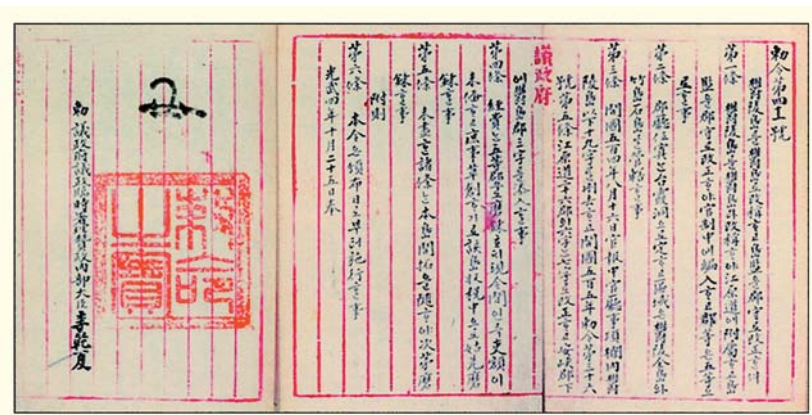 勅令第四十一號
鬱陵島를鬱島로改稱ᄒᆞ고島監을郡守로改正ᄒᆞᆫ件
第一條 鬱陵島를鬱島라改稱ᄒᆞ야江原道에附屬ᄒᆞ고島
監을郡守로改正ᄒᆞ야官制中에編入ᄒᆞ고郡等은五等으
로ᄒᆞᆯ事
第二條 郡廳位寘ᄂᆞᆫ台霞洞으로定ᄒᆞ고區域은鬱陵全島와
竹島石島를管轄ᄒᆞᆯ事
第三條 開國五百四年八月十六日官報中官廳事項欄內鬱
陵島以下十九字를刪去ᄒᆞ고開國五百五年勅令第三十六
號第五條江原道二十六郡의六字ᄂᆞᆫ七字로改正ᄒᆞ고安峽郡下
議政府
에鬱島郡三字를添入ᄒᆞᆯ事
第四條 經費ᄂᆞᆫ五等郡으로磨鍊호ᄃᆡ現今間인즉吏額이
未備ᄒᆞ고庶事草創ᄒᆞ기로該島收稅中으로姑先磨
鍊ᄒᆞᆯ事
第五條 未盡ᄒᆞᆫ諸條ᄂᆞᆫ本島開拓을隨ᄒᆞ야次第磨
鍊ᄒᆞᆯ事
附則
第六條 本令은頒布日로부터施行ᄒᆞᆯ事
光武四年十月二十五日奉
勅命之寶
勅 議政府議政臨時署理贊政內部大臣李乾夏